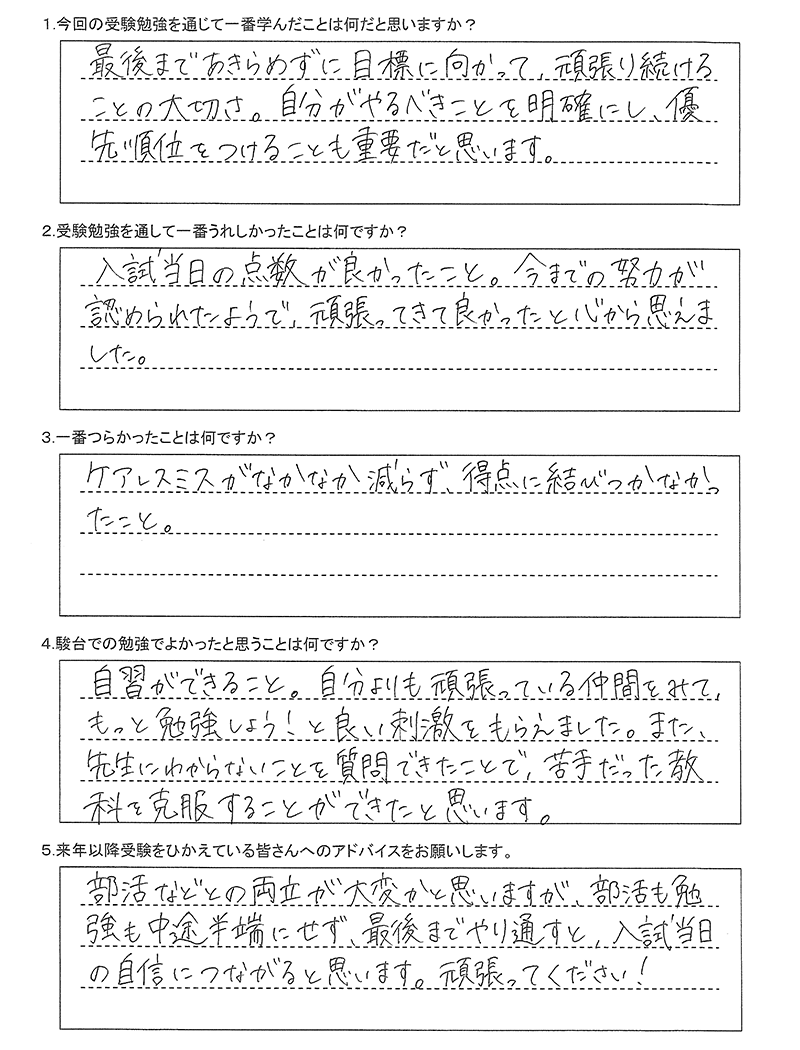 1.今回の受験勉強を通じて一番学んだことは何だと思いますか？
最後まであきらめずに目標に向かって、頑張り続ける
ことの大切さ。自分がやるべきことを明確にし、優
先順位をつけることも重要だと思います。
2.受験勉強を通して一番うれしかったことは何ですか？
入試当日の点数が良かったこと。今までの努力が
認められたようで、頑張ってきて良かったと心から思えま
した。
3.一番つらかったことは何ですか？
ケアレスミスがなかなか減らず、得点に結びつかなかっ
たこと。
4.駿台での勉強でよかったと思うことは何ですか？
自習ができること。自分よりも頑張っている仲間をみて、
もっと勉強しよう！と良い刺激をもらえました。また、
先生にわからないことを質問できたことで、苦手だった教
科を克服することができたと思います。
5.来年以降受験をひかえている皆さんへのアドバイスをお願いします。
部活などとの両立が大変かと思いますが、部活も勉
強も中途半端にせず、最後までやり通すと、入試当日
の自信につながると思います。頑張ってください！